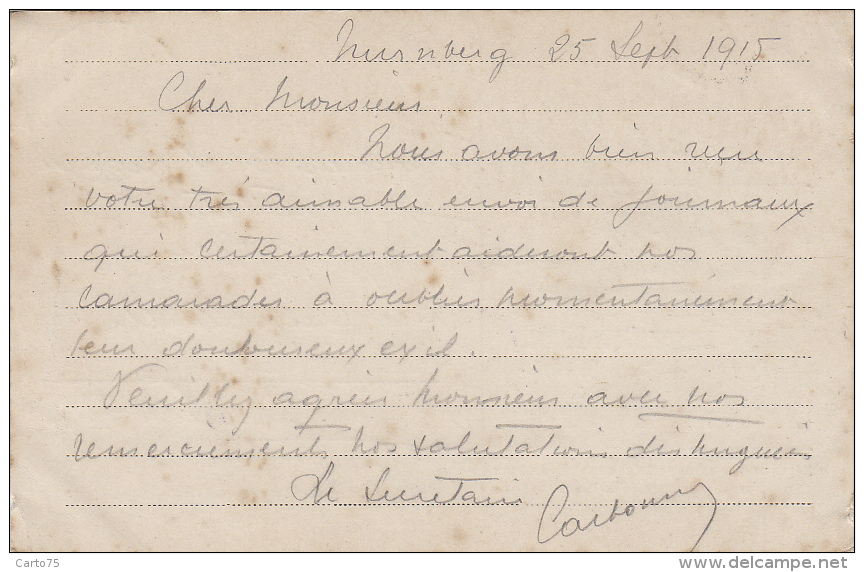 Nurnberg 25 Sept 1915
Cher Monsieur
Nous avons bien reçu
votre très aimable envoi de journaux
qui certainement aideront nos
camarades à oublier momentanément
leur douloureux exil.
Veuillez agréer Monsieur avec nos
remerciements nos salutations distinguées
Le Secretaire
Carto75
www.delcampe.net